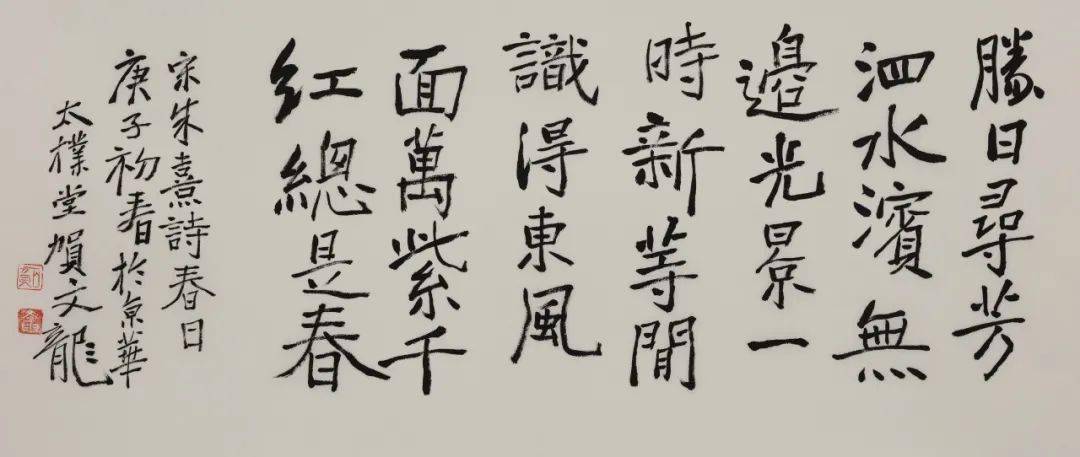 勝日尋芳
泗水濱無
邉光景一
時新等閒
識得東風
面萬紫千
紅總是春
宋朱熹詩春日
庚子初春於京華
太樸堂賀文龍